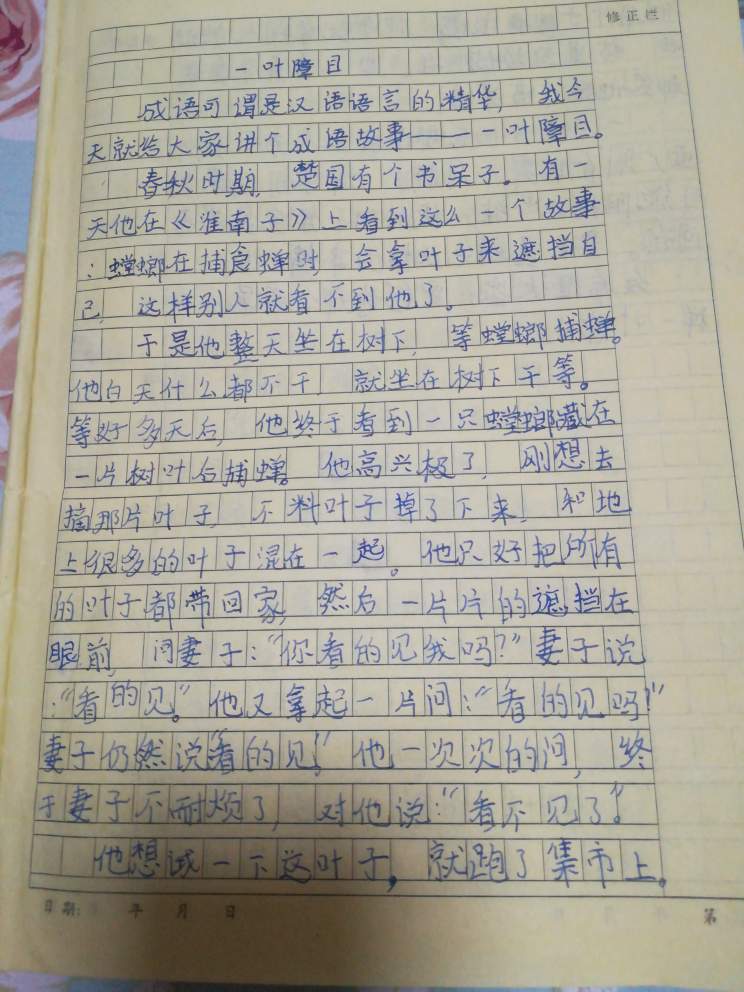 修正栏
一叶障目
成语可谓是汉语语言的精华,我今
天就给大家讲个成语故事——一叶障目。
春秋时期,楚国有个书呆子。有一
天他在《淮南子》上看到这么一个故事
:螳螂在捕食蝉时 会拿叶子来遮挡自
己,这样别人就看不到他了。
于是他整天坐在树下,等螳螂捕蝉。
他白天什么都不干,就坐在树下干等。
等好多天后,他终于看到一只螳螂藏在
一片树叶后捕蝉。他高兴极了,刚想去
摘那片叶子,不料叶子掉了下来,和地
上很多的叶子混在一起。他只好把所有
的叶子都带回家,然后一片片的遮挡在
眼前,问妻子:“你看的见我吗?”妻子说
:“看的见。”他又拿起一片问:“看的见吗?”
妻子仍然说“看的见!”他一次次的问,终
于妻子不耐烦了,对他说:“看不见了。”
他想试一下这叶子,就跑了集市上。
日期: 年 月 日 第